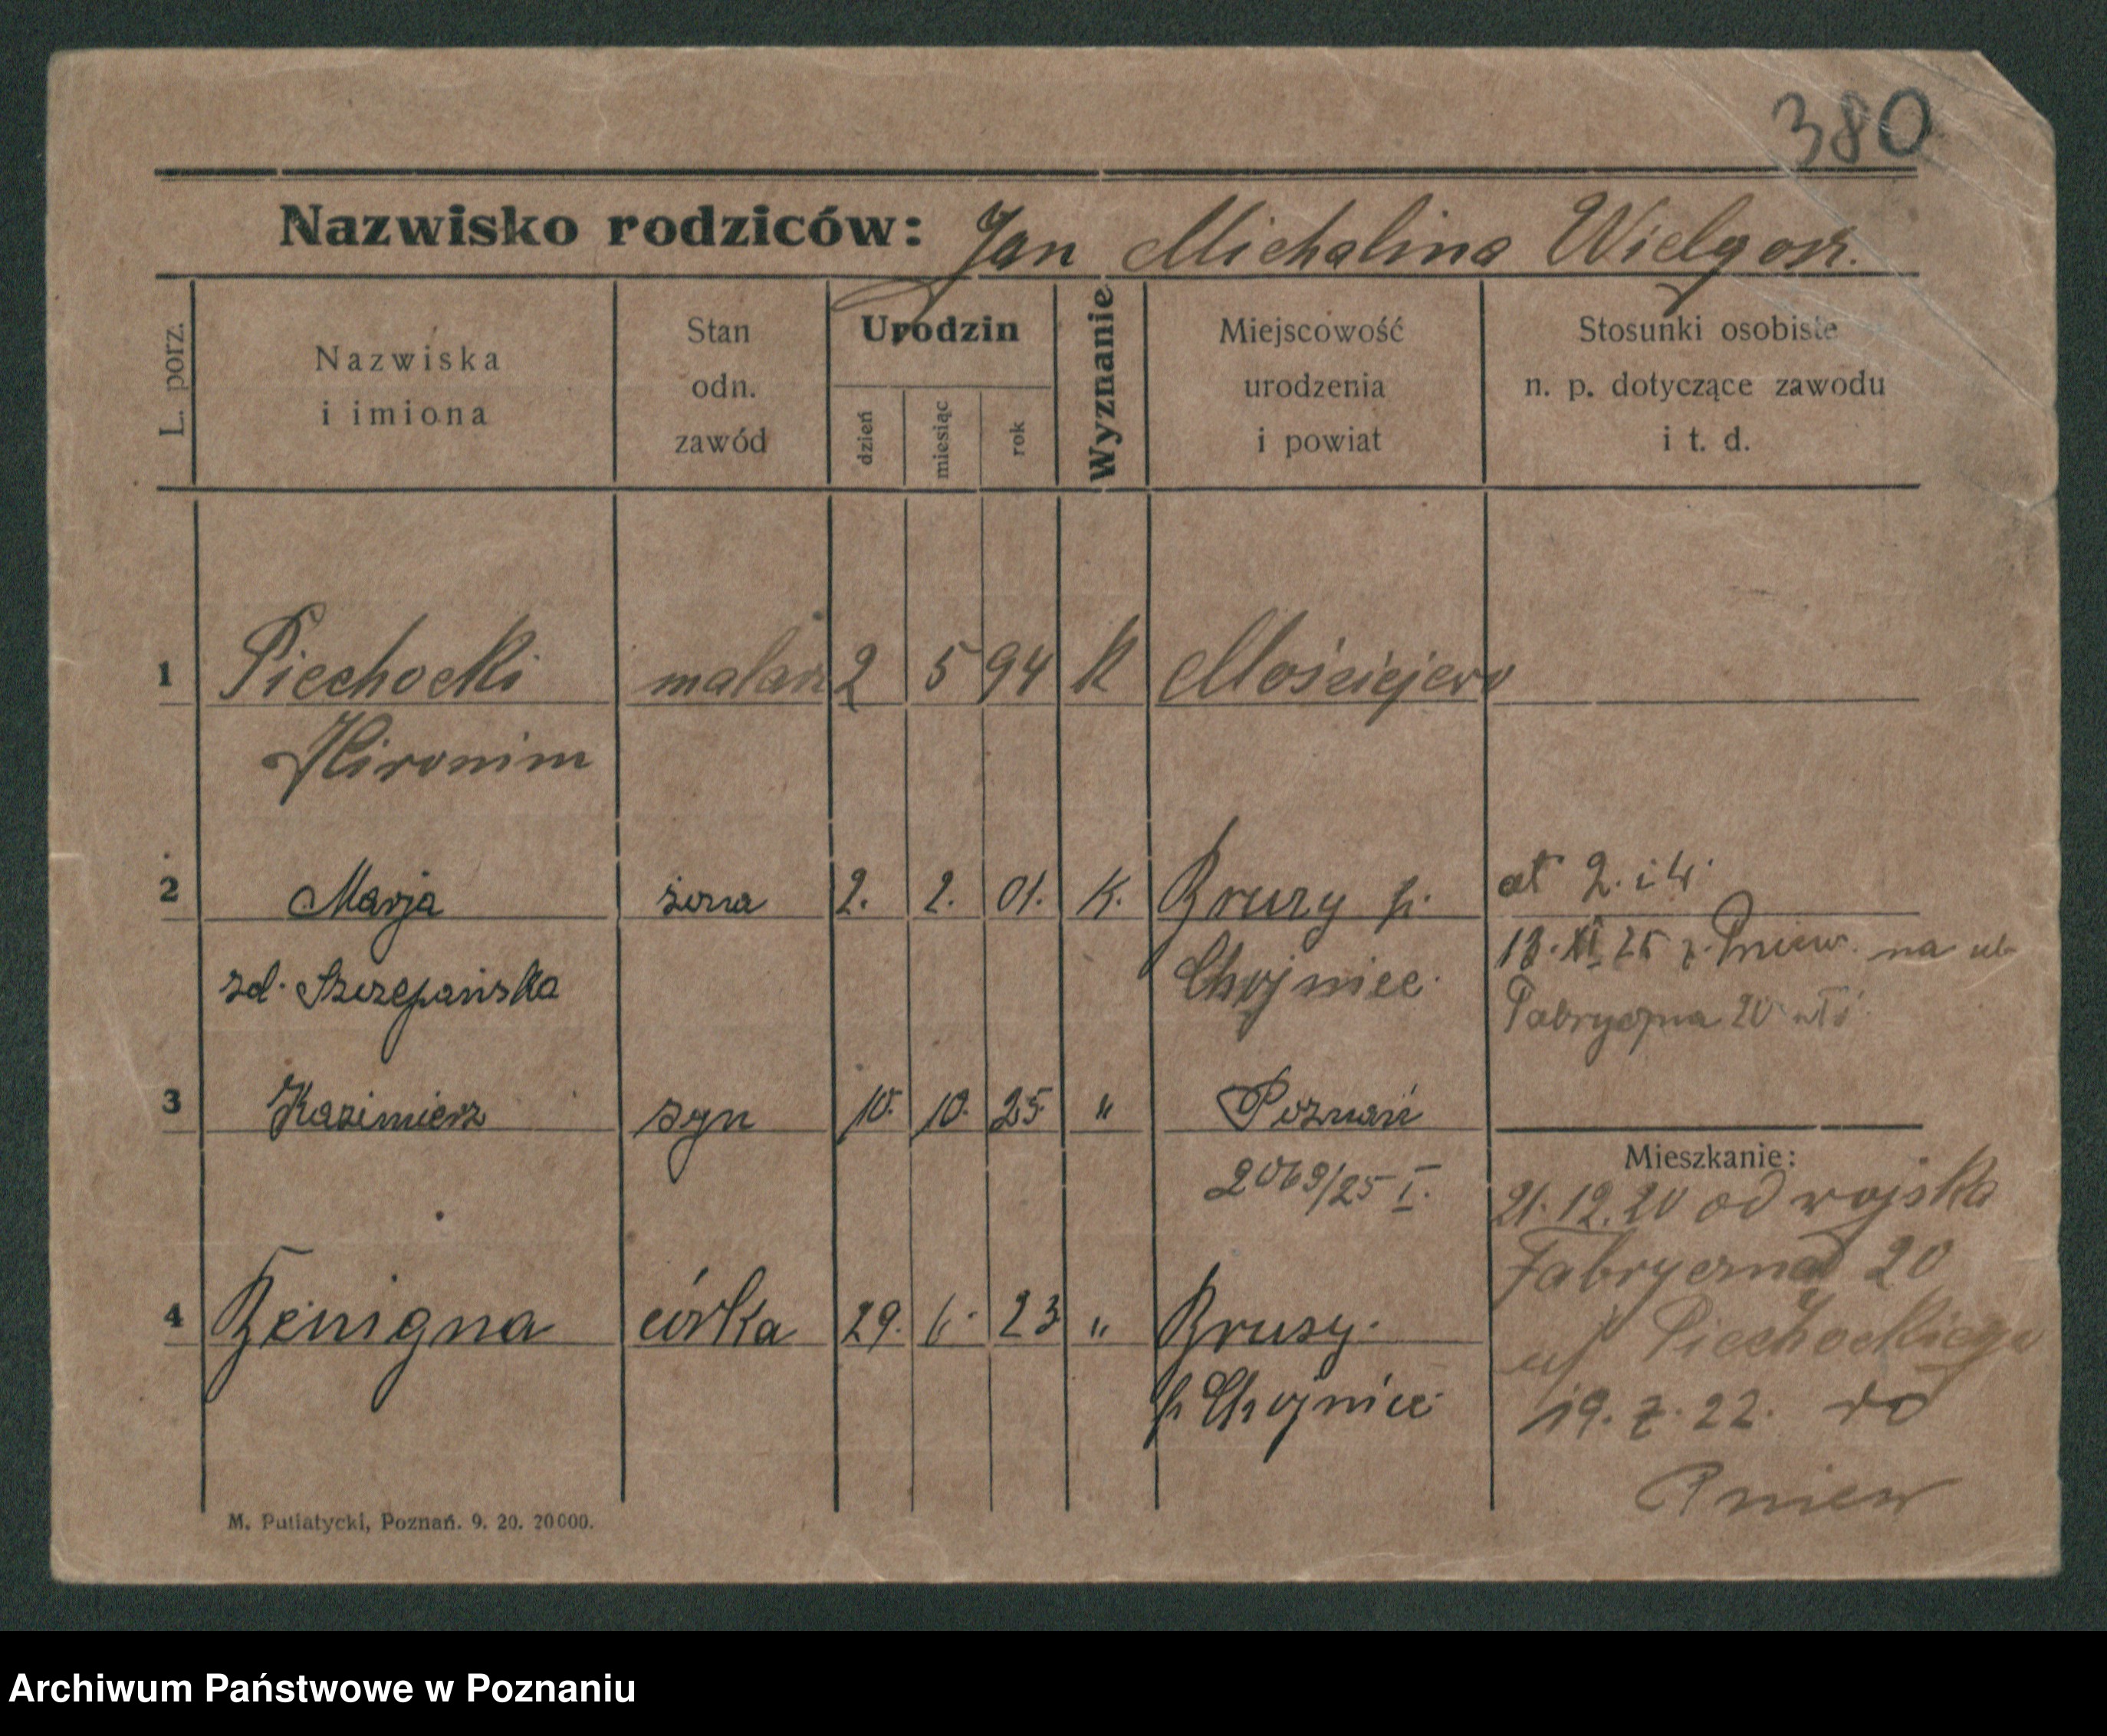 380
Nazwisko rodziców: Jan Michalina Wielgosz.
L. porz.
Nazwiska
i imiona
Stan
odn.
zawód
Urodzin
dzień
miesiąc
rok
Wyznanie
Miejscowość
urodzenia
i powiat
Stosunki osobiste
n. p. dotyczące zawodu
i t. d.
1 Piechocki malarz 2 5 94 K Mościejewo
Hironim
2 Marja żona 2. 2. 01. K. Brusy p.
zd. Szczepańska Chojnice.
at 2. i 4.
18. XI 25 z. Pniew. na ul.
Fabryczna 20
3 Kazimierz syn 10. 10. 25 " Poznań
2069/25 I.
4 Benigna córka 29. 6. 23 " Brusy.
p. Chojnice
Mieszkanie:
21.12.20 od wojska
Fabryczna 20
Piechockiego
19. 7. 22. do
Pniew
M. Putiatycki, Poznań. 9. 20. 20000.
Archiwum Państwowe w Poznaniu